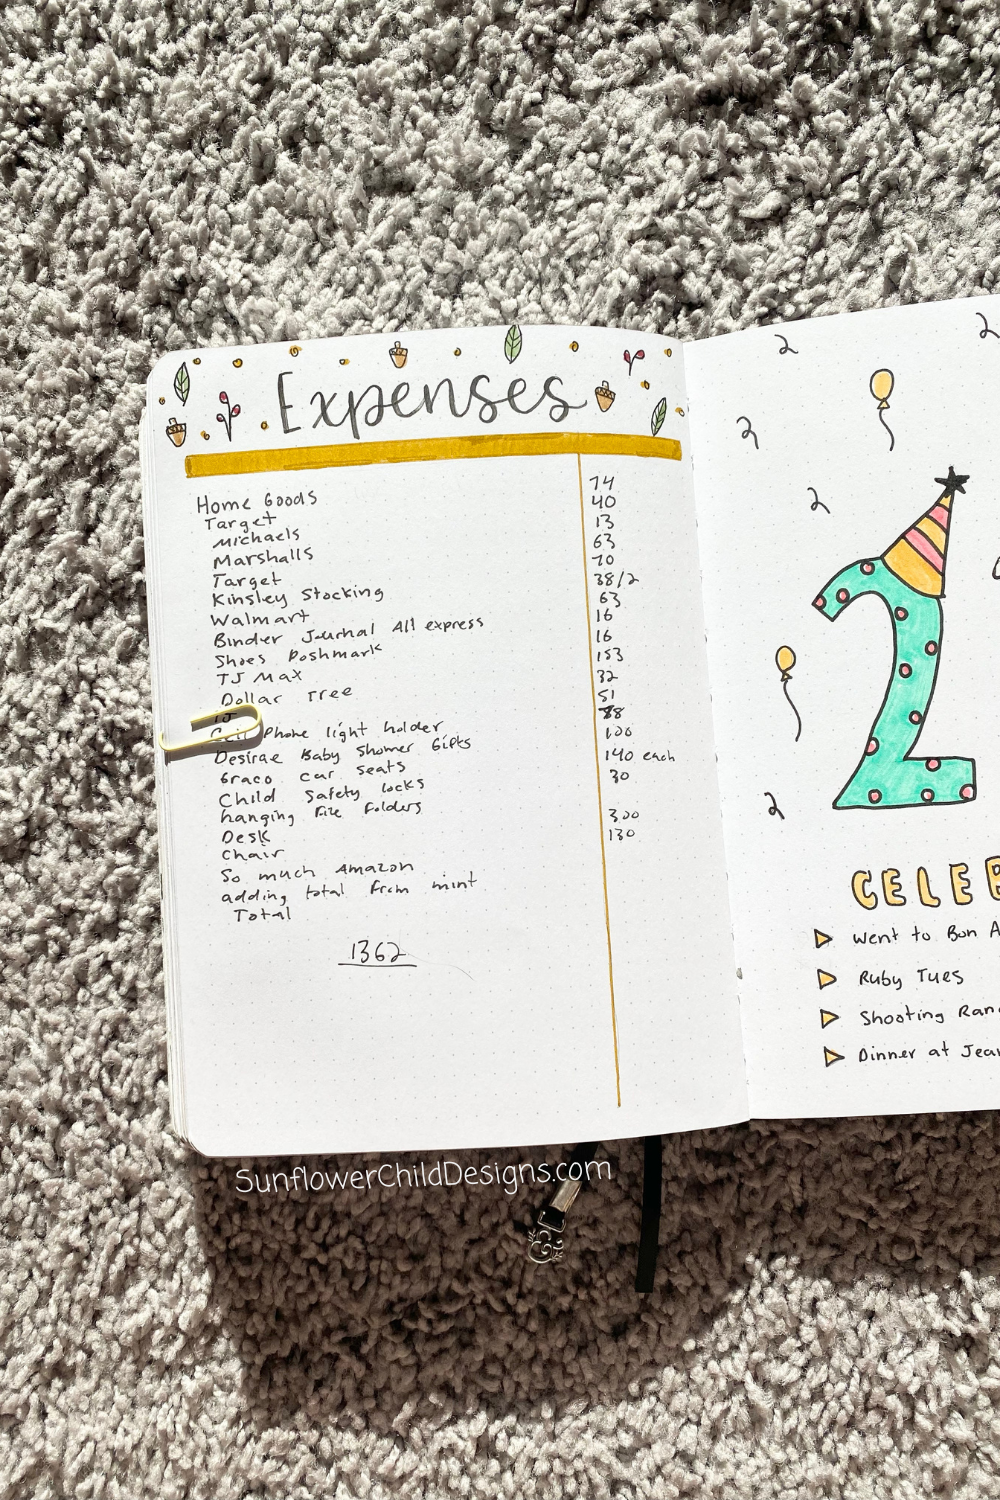 Expenses
Home Goods 74
Target 40
Michaels 13
Marshalls 63
Target 70
Kinsley Stocking 38/2
Walmart 63
Binder Journal All express 16
Shoes Poshmark 16
TJ Max 153
Dollar Tree 32
TJ 51
Cell Phone light holder 88
Desirae Baby Shower Gifts 100
Graco car seats 140 each
Child Safety locks 30
hanging file folders
Desk 300
Chair 130
So much Amazon
adding total from mint
Total
1362
2
2
2
2
2
2
CELEB
Went to Bon A
Ruby Tues
Shooting Ran
Dinner at Jea
SunflowerChildDesigns.com